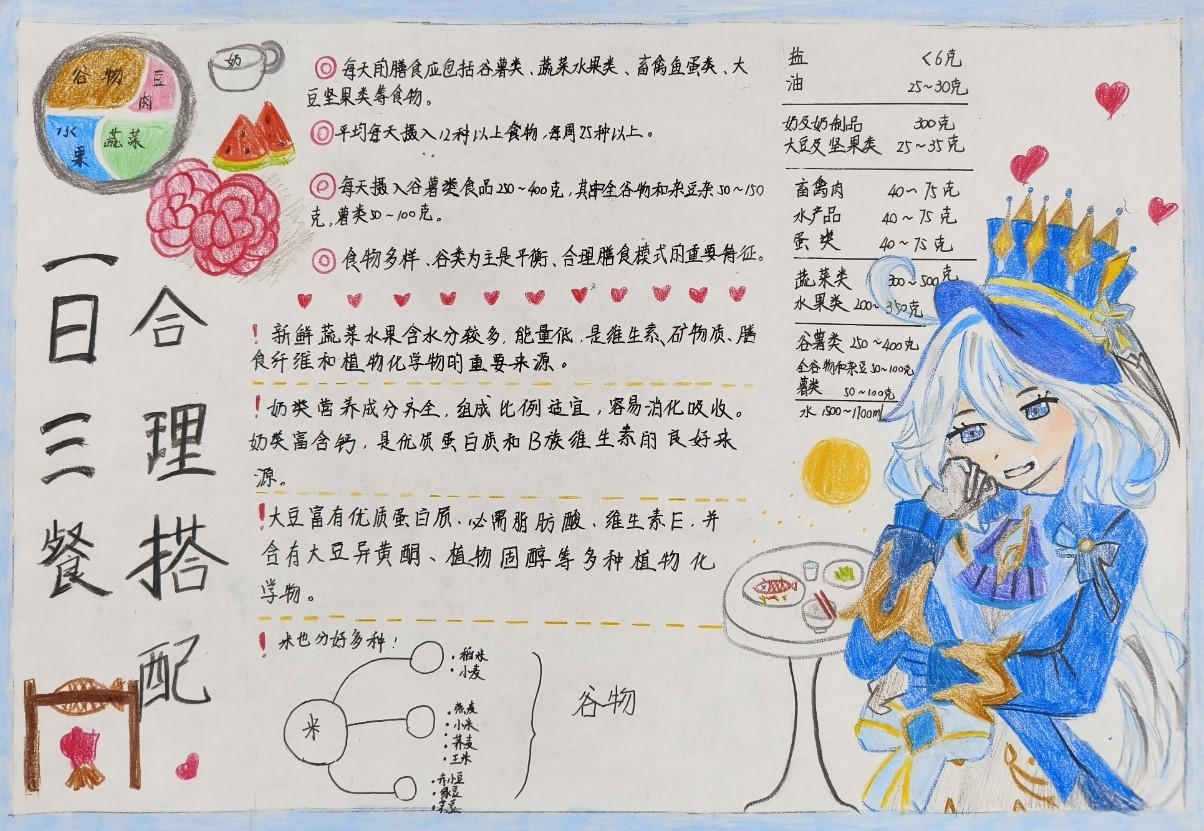 合理搭配
一日三餐
谷物
豆
肉
水
果
蔬菜
奶
每天的膳食应包括谷薯类、蔬菜水果类、畜禽鱼蛋类、大
豆坚果类等食物。
平均每天摄入12种以上食物,每周25种以上。
每天摄入谷薯类食品250~400克,其中全谷物和杂豆杂50~150
克,薯类50~100克。
食物多样、谷类为主是平衡、合理膳食模式的重要特征。
! 新鲜蔬菜水果含水分较多,能量低,是维生素、矿物质、膳
食纤维和植物化学物的重要来源。
! 奶类营养成分齐全,组成比例适宜,容易消化吸收。
奶类富含钙,是优质蛋白质和B族维生素的良好来
源。
! 大豆富有优质蛋白质、必需脂肪酸、维生素E,并
含有大豆异黄酮、植物固醇等多种植物化
学物。
! 米也分好多种!
米
·稻米
·小麦
·燕麦
·小米
·荞麦
·玉米
·赤小豆
·绿豆
谷物
盐 <6克
油 25~30克
奶及奶制品 300克
大豆及坚果类 25~35克
畜禽肉 40~75克
水产品 40~75克
蛋类 40~75克
蔬菜类 300~500克
水果类 200~350克
谷薯类 250~400克
全谷物和杂豆 50~100克
薯类 50~100克
水 1500~1700ml